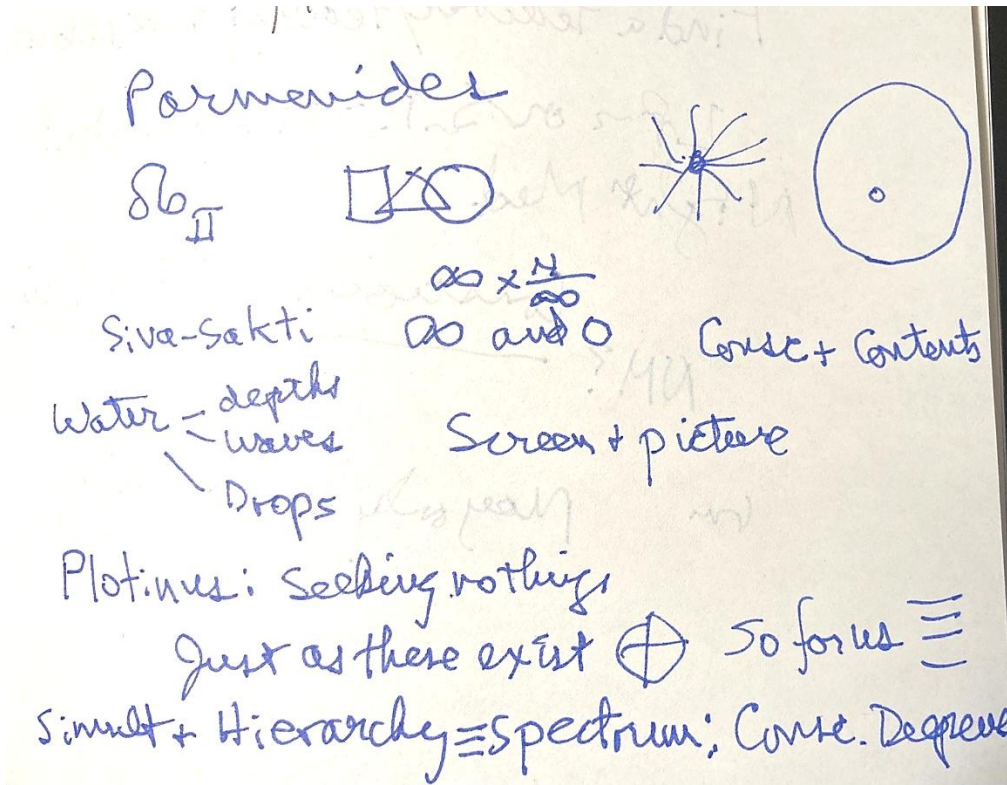 Parmenides
II
∞ × N/∞
Siva-Sakti ∞ and 0 Consc + Contents
Water - depths
- waves Screen + picture
Drops
Plotinus: Seeking nothing
Just as these exist ⊕ So for us
Simult + Hierarchy ≡ Spectrum; Consc. Degrees